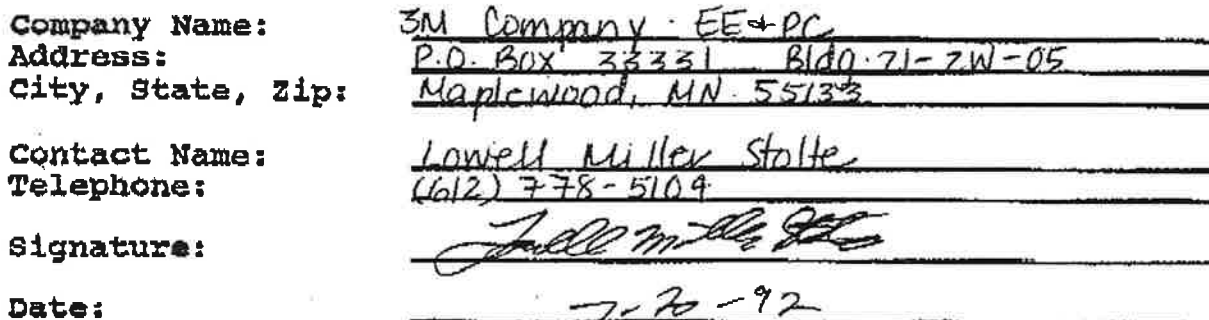 Company Name: 3M Company · EE & PC
Address: P.O. Box 33331 Bldg. 21-2W-05
City, State, Zip: Maplewood, MN. 55133
Contact Name: Lowell Miller Stolte
Telephone: (612) 778-5109
Signature: Lowell Miller Stolte
Date: 7-20-92